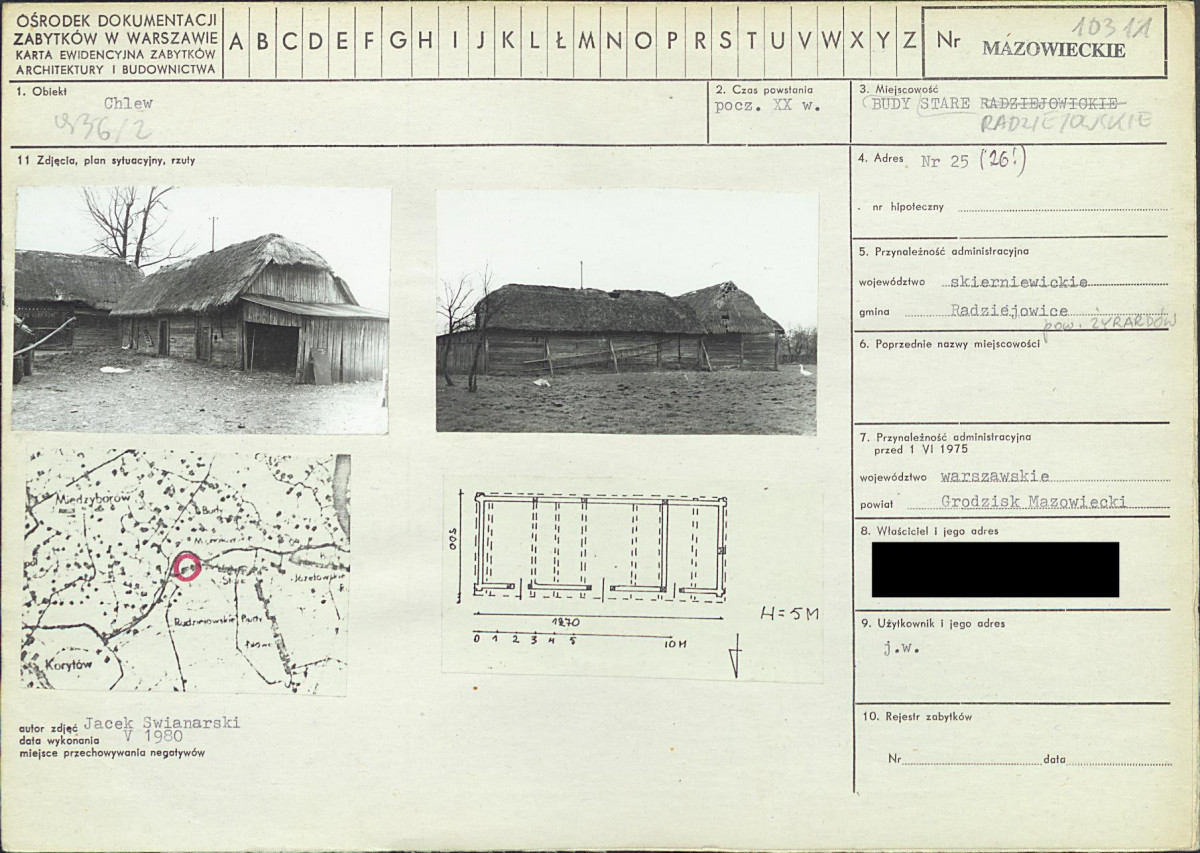 OŚRODEK DOKUMENTACJI
ZABYTKÓW W WARSZAWIE
KARTA EWIDENCYJNA ZABYTKÓW
ARCHITEKTURY I BUDOWNICTWA
A B C D E F G H I J K L Ł M N O P R S T U V W X Y Z
Nr 10311
MAZOWIECKIE
1. Obiekt
Chlew
936/2
2. Czas powstania
pocz. XX w.
3. Miejscowość
BUDY STARE RADZIEJOWICKIE
RADZIEJOWSKIE
11 Zdjęcia, plan sytuacyjny, rzuty
4. Adres Nr 25 (26!)
nr hipoteczny
5. Przynależność administracyjna
województwo skierniewickie
gmina Radziejowice
pow. ŻYRARDÓW
6. Poprzednie nazwy miejscowości
7. Przynależność administracyjna
przed 1 VI 1975
województwo warszawskie
powiat Grodzisk Mazowiecki
8. Właściciel i jego adres
9. Użytkownik i jego adres
j.w.
10. Rejestr zabytków
Nr data
Międzyborów
Budy
Stare
Józefowskie
Radziejowskie Budy
Korytów
500
1270
0 1 2 3 4 5 10 M
H=5M
autor zdjęć Jacek Swianarski
data wykonania V 1980
miejsce przechowywania negatywów